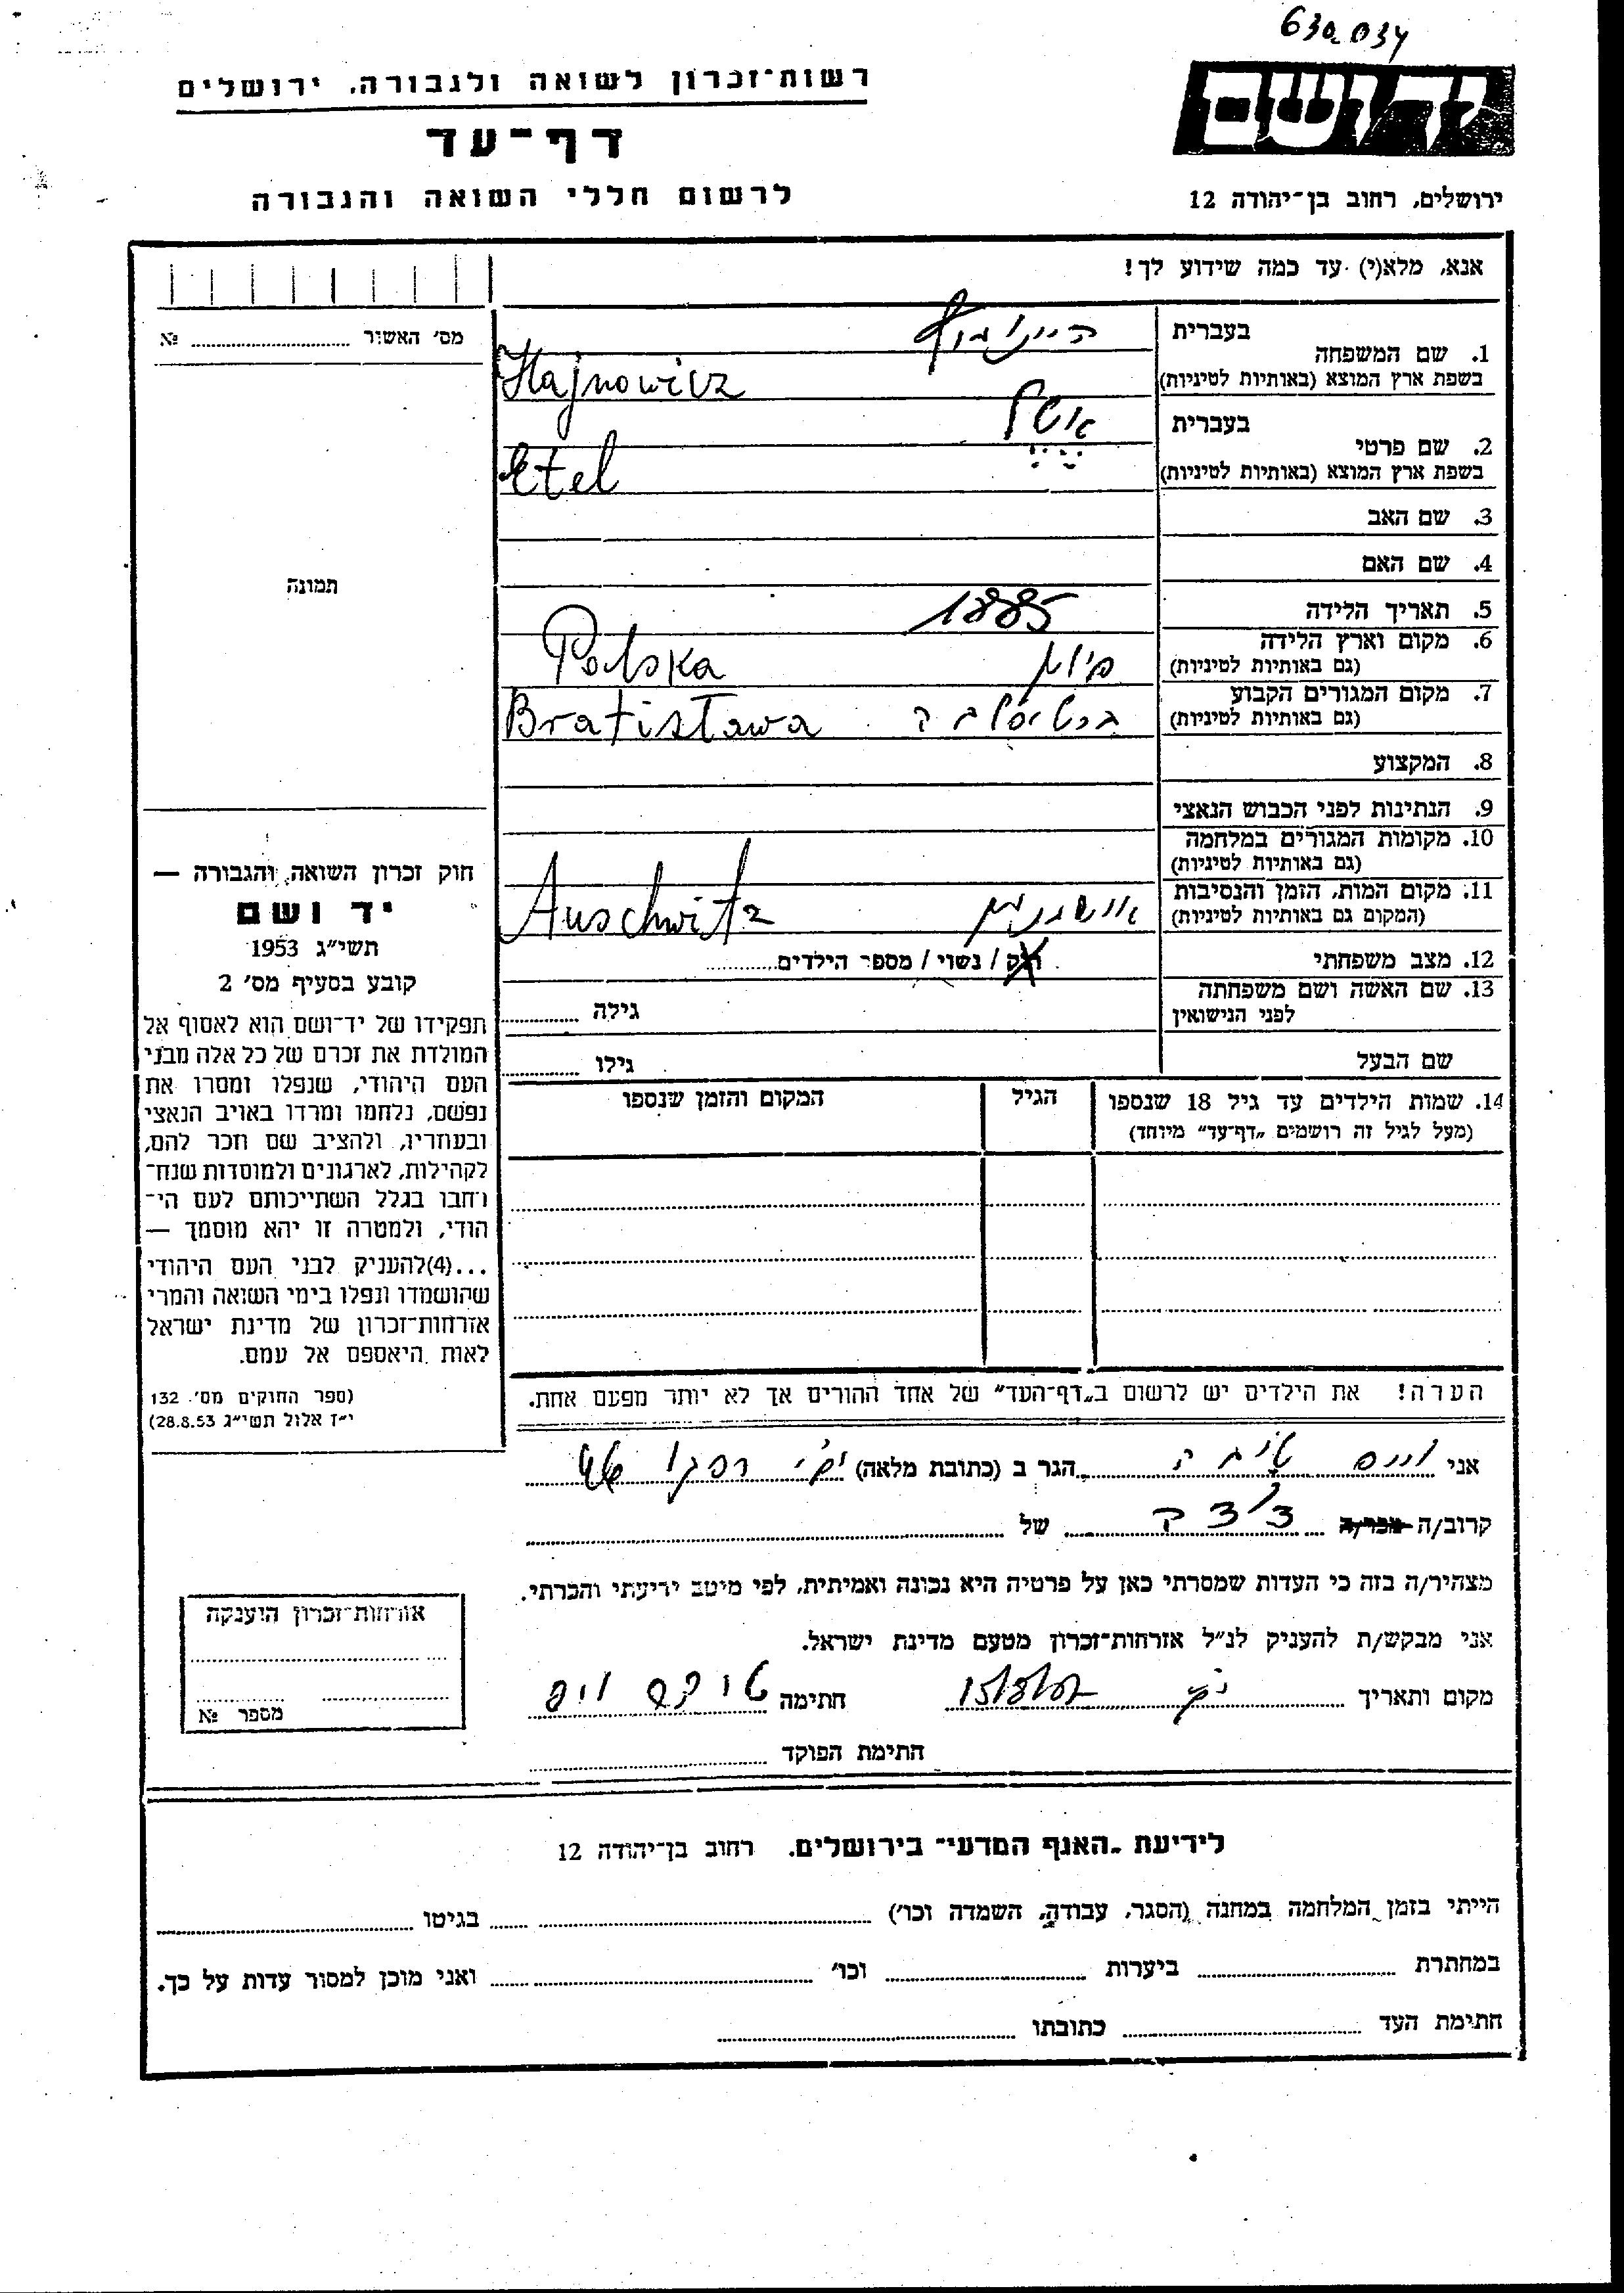 630034
רשות־זכרון לשואה ולגבורה, ירושלים
יד ושם
דף־עד
לרשום חללי השואה והגבורה
ירושלים, רחוב בן־יהודה 12
אנא, מלא(י) עד כמה שידוע לך!
מס' האשור № 
1. שם המשפחה בעברית
בשפת ארץ המוצא (באותיות לטיניות) Hajnowicz
2. שם פרטי בעברית אטל
בשפת ארץ המוצא (באותיות לטיניות) Etel
3. שם האב
4. שם האם
תמונה
5. תאריך הלידה 1885
6. מקום וארץ הלידה
(גם באותיות לטיניות) פולין Polska
7. מקום המגורים הקבוע
(גם באותיות לטיניות) ברטיסלבה Bratisława
8. המקצוע
9. הנתינות לפני הכבוש הנאצי
10. מקומות המגורים במלחמה
(גם באותיות לטיניות)
11. מקום המות, הזמן והנסיבות
(המקום גם באותיות לטיניות) אושוויץ Auschwitz
12. מצב משפחתי רוק / נשוי / מספר הילדים
13. שם האשה ושם משפחתה
לפני הנישואין גילה
שם הבעל גילו
14. שמות הילדים עד גיל 18 שנספו הגיל המקום והזמן שנספו
(מעל לגיל זה רושמים "דף־עד" מיוחד)
חוק זכרון השואה והגבורה —
יד ושם
תשי"ג 1953
קובע בסעיף מס' 2
תפקידו של יד־ושם הוא לאסוף אל
המולדת את זכרם של כל אלה מבני
העם היהודי, שנפלו ומסרו את
נפשם, נלחמו ומרדו באויב הנאצי
ובעוזריו, ולהציב שם וזכר להם,
לקהילות, לארגונים ולמוסדות שנח־
רבו בגלל השתייכותם לעם הי־
הודי, ולמטרה זו יהא מוסמך —
...(4)להעניק לבני העם היהודי
שהושמדו ונפלו בימי השואה והמרי
אזרחות־זכרון של מדינת ישראל
לאות היאספם אל עמם.
(ספר החוקים מס'. 132
י"ז אלול תשי"ג 28.8.53)
הערה! את הילדים יש לרשום ב"דף־העד" של אחד ההורים אך לא יותר מפעם אחת.
אני וייס טובה הגר ב (כתובת מלאה)
קרוב/ה מכר/ה של
מצהיר/ה בזה כי העדות שמסרתי כאן על פרטיה היא נכונה ואמיתית, לפי מיטב ידיעתי והכרתי.
אני מבקש/ת להעניק לנ"ל אזרחות־זכרון מטעם מדינת ישראל.
מקום ותאריך חתימה
אזרחות־זכרון הוענקה
מספר №
חתימת הפוקד
לידיעת "האגף המדעי" בירושלים. רחוב בן־יהודה 12
הייתי בזמן המלחמה במחנה (הסגר, עבודה, השמדה וכו') בגיטו
במחתרת ביערות וכו' ואני מוכן למסור עדות על כך.
חתימת העד כתובתו